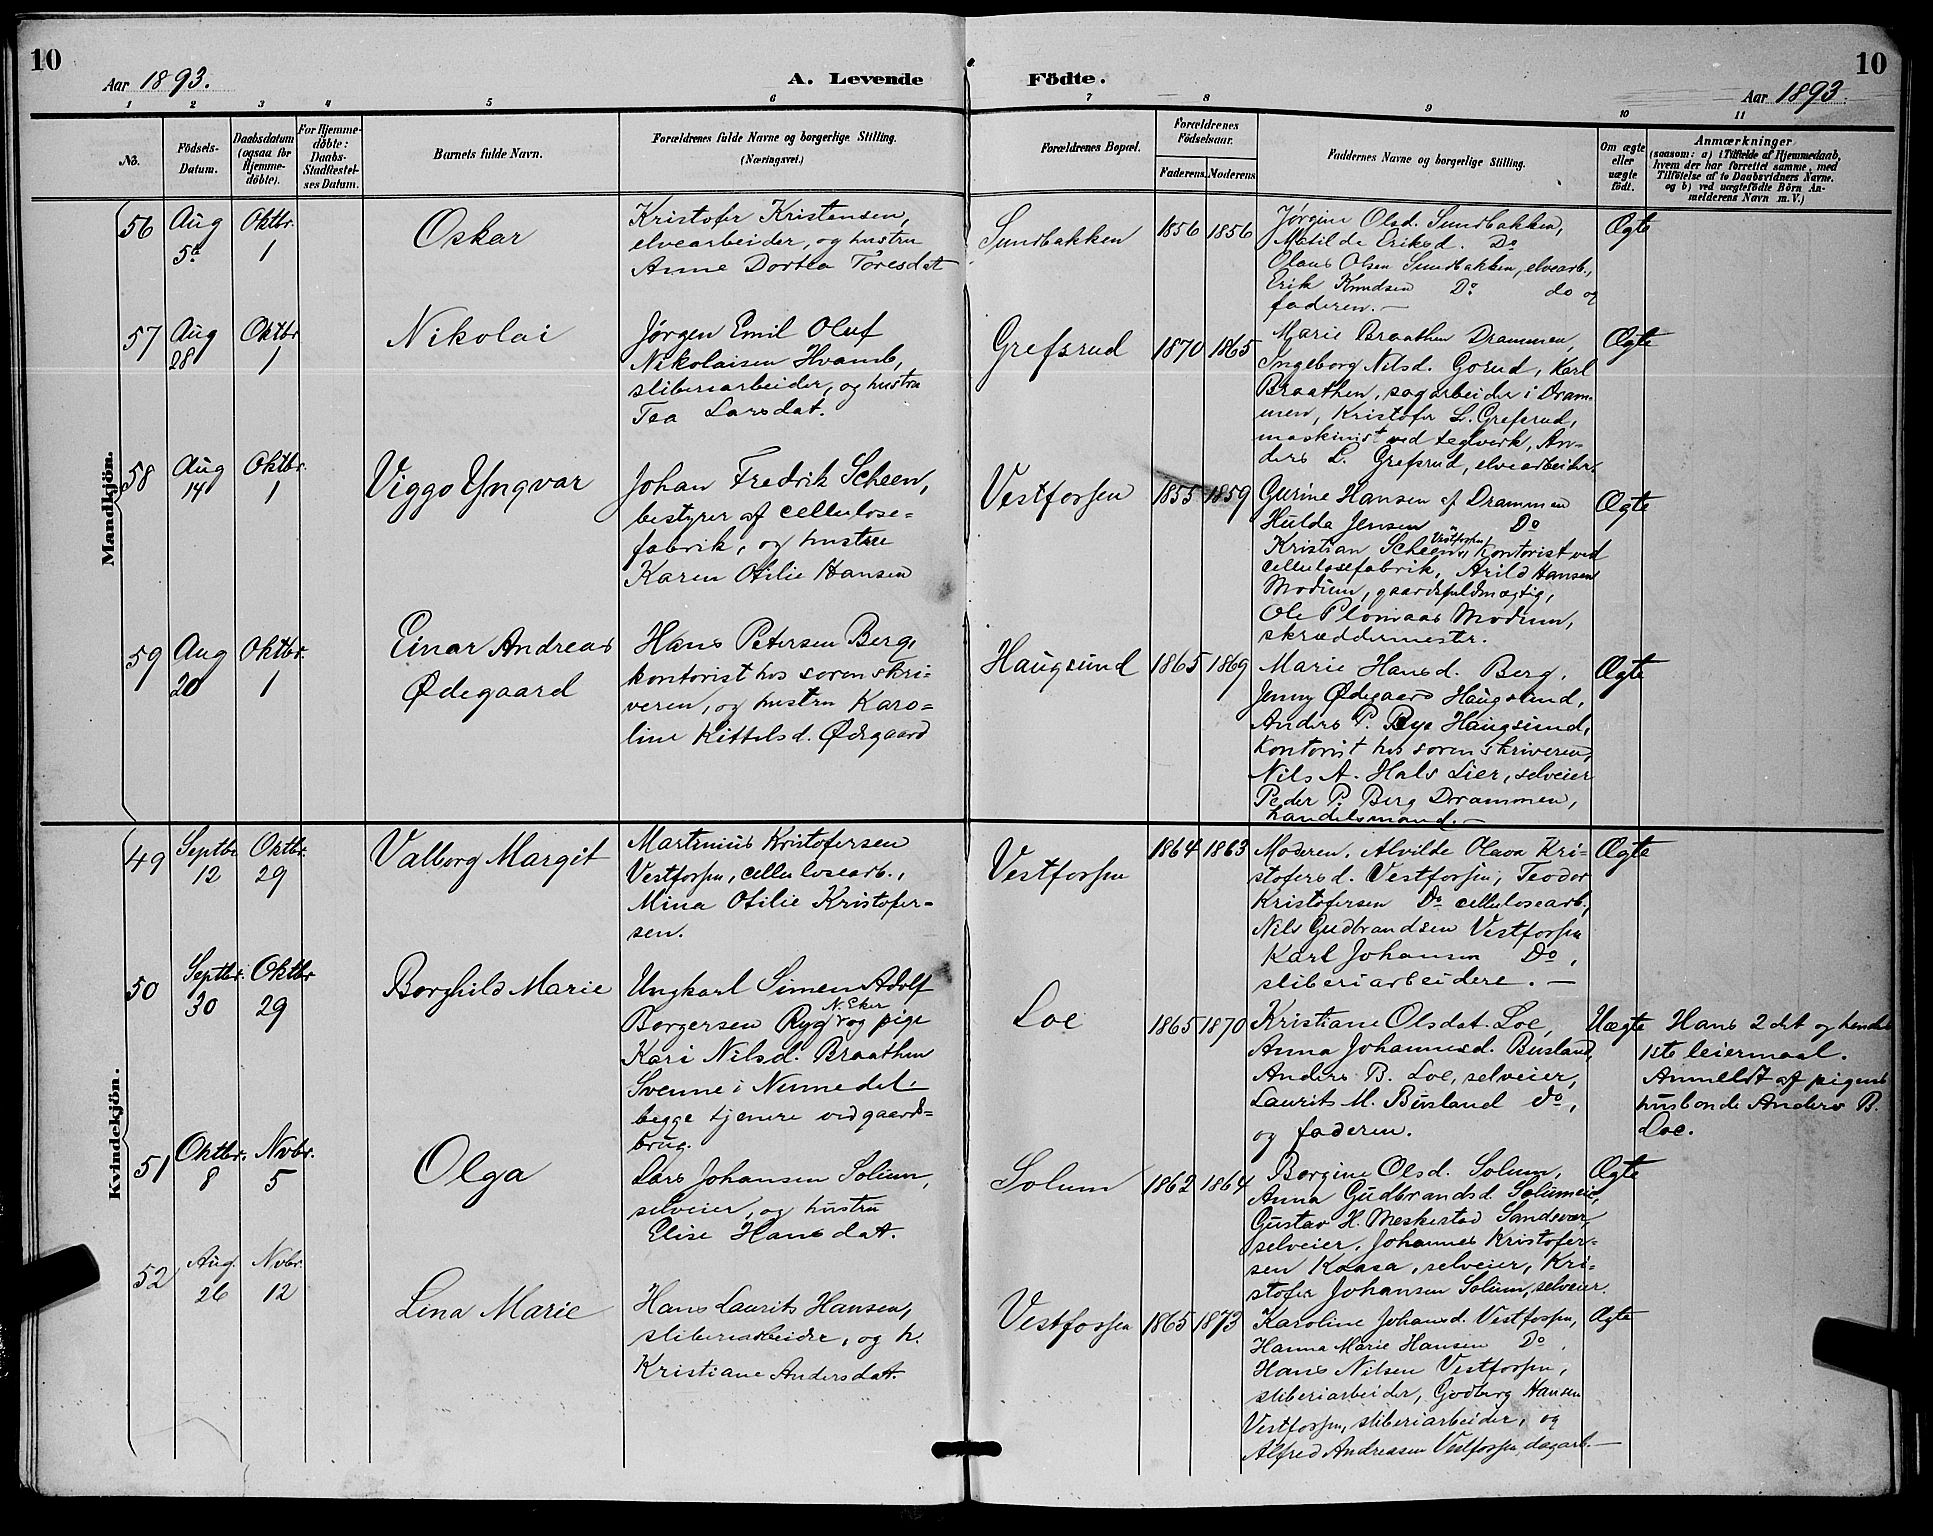 10
Aar 1893.
A. Levende Födte.
Aar 1893.
10
1 2 3 4 5 6 7 8 9 10 11
No.
Födsels-
Datum.
Daabsdatum
(ogsaa for
Hjemme-
döbte).
For Hjemme-
döbte:
Daabs-
Stadfæstel-
ses Datum.
Barnets fulde Navn.
Forældrenes fulde Navne og borgerlige Stilling.
(Næringsvei.)
Forældrenes Bopæl.
Forældrenes
Födselsaar.
Faderens Moderens
Faddernes Navne og borgerlige Stilling.
Om ægte
eller
uægte
födt.
Anmærkninger
(saasom: a) i Tilfælde af Hjemmedaab,
hvem der har forrettet samme, med
Tilföielse af to Daabsvidners Navne.
og b) ved uægtefödte Börn An-
melderens Navn m. V.)
Mandkjön.
56
Aug
5te
Oktbr.
1
Oskar
Kristofer Kristensen,
elvearbeider, og hustru
Anne Dortea Toresdat
Sundbakken
1856 1856
Jørgine Olsd. Sundbakken,
Matilde Eriksd. Do
Olaus Olsen Sundbakken, elvearb.,
Erik Knudsen Do do og
faderen.-
Ægte
57
Aug
28
Oktbr
1
Nikolai
Jørgen Emil Oluf
Nikolaisen Hvamb,
sliberiarbeider, og hustru
Tea Larsdat.
Grefsrud
1870 1865
Marie Braathen Drammen,
Ingeborg Nilsd. Gorud, Karl
Braathen, sagarbeider i Dram-
men, Kristofer L. Grefsrud,
maskinist ved teglverk, An-
ders L. Grefsrud, elvearbeider.
Ægte
58
Aug
14
Oktbr.
1
Viggo Yngvar
Johan Fredrik Scheen,
bestyrer af cellulose-
fabrik, og hustru
Karen Otilie Hansen
Vestfossen
1855 1859
Gurine Hansen af Drammen
Hulda Jensen Do
Kristian Scheen, Vestfossen, kontorist ved
cellulosefabrik, Arild Hansen
Modum, gaardsfuldmægtig,
Ole Plomaas Modum,
skræddermester.
Ægte
59
Aug
20
Oktbr.
1
Einar Andreas
Ødegaard
Hans Petersen Berg,
kontorist hos sorenskri-
veren, og hustru Karo-
line Kittelsd. Ødegaard
Haugsund
1865 1869
Marie Hansd. Berg,
Jenny Ødegaard Haugsund,
Anders P. Rye Haugsund,
kontorist hos sorenskriveren,
Nils A. Hals Lier, selveier
Peder P. Berg Drammen,
handelsmand.-
Ægte
Kvindekjön.
49
Septbr
12
Oktbr.
29
Valborg Margit
Martinius Kristofersen
Vestfossen, cellulosearb.,
Mina Otilie Kristofer-
sen.
Vestfossen
1864 1863
Moderen, Alvilde Olava Kri-
stofersd. Vestfossen, Teodor
Kristofersen Do cellulosearb.,
Nils Gudbrandsen Vestfossen
Karl Johansen Do,
sliberiarbeidere.-
Ægte
50
Septbr.
30
Oktbr
29
Borghild Marie
Ungkarl Simen Adolf
Borgersen Ryg N. Eker og pige
Kari Nilsd. Braathen
Svenne i Numedal
begge tjenere ved gaards-
brug.
Loe
1865 1870
Kristiane Olsdat. Loe,
Anna Johannesd. Busland,
Anders B. Loe, selveier,
Laurits M. Busland do,
og faderen.
Uægte
Hans 2det og hendes
1ste leiermaal.
Anmeldt af pigens
husbonde Anders B.
Loe.
51
Oktbr.
8
Nvbr.
5
Olga
Lars Johansen Solum,
selveier, og hustru
Elise Hansdat.
Solum
1862 1864
Borgine Olsd. Solum,
Anna Gudbrandsd. Solumeie,
Gustav H. Meskestad Sandsvær,
selveier, Johannes Kristofer-
sen Kaasa, selveier, Kri-
stofer Johansen Solum, selveier.
Ægte
52
Aug.
26
Nvbr.
12
Lina Marie
Hans Laurits Hansen,
sliberiarbeider, og h.
Kristiane Andersdat.
Vestfossen
1865 1873
Karoline Johansd. Vestfossen,
Hanna Marie Hansen Do,
Hans Nilsen Vestfossen,
sliberiarbeider, Godberg Hansen
Vestfossen, sliberiarbeider, og
Alfred Andreasen Vestfossen, dagarb.-
Ægte